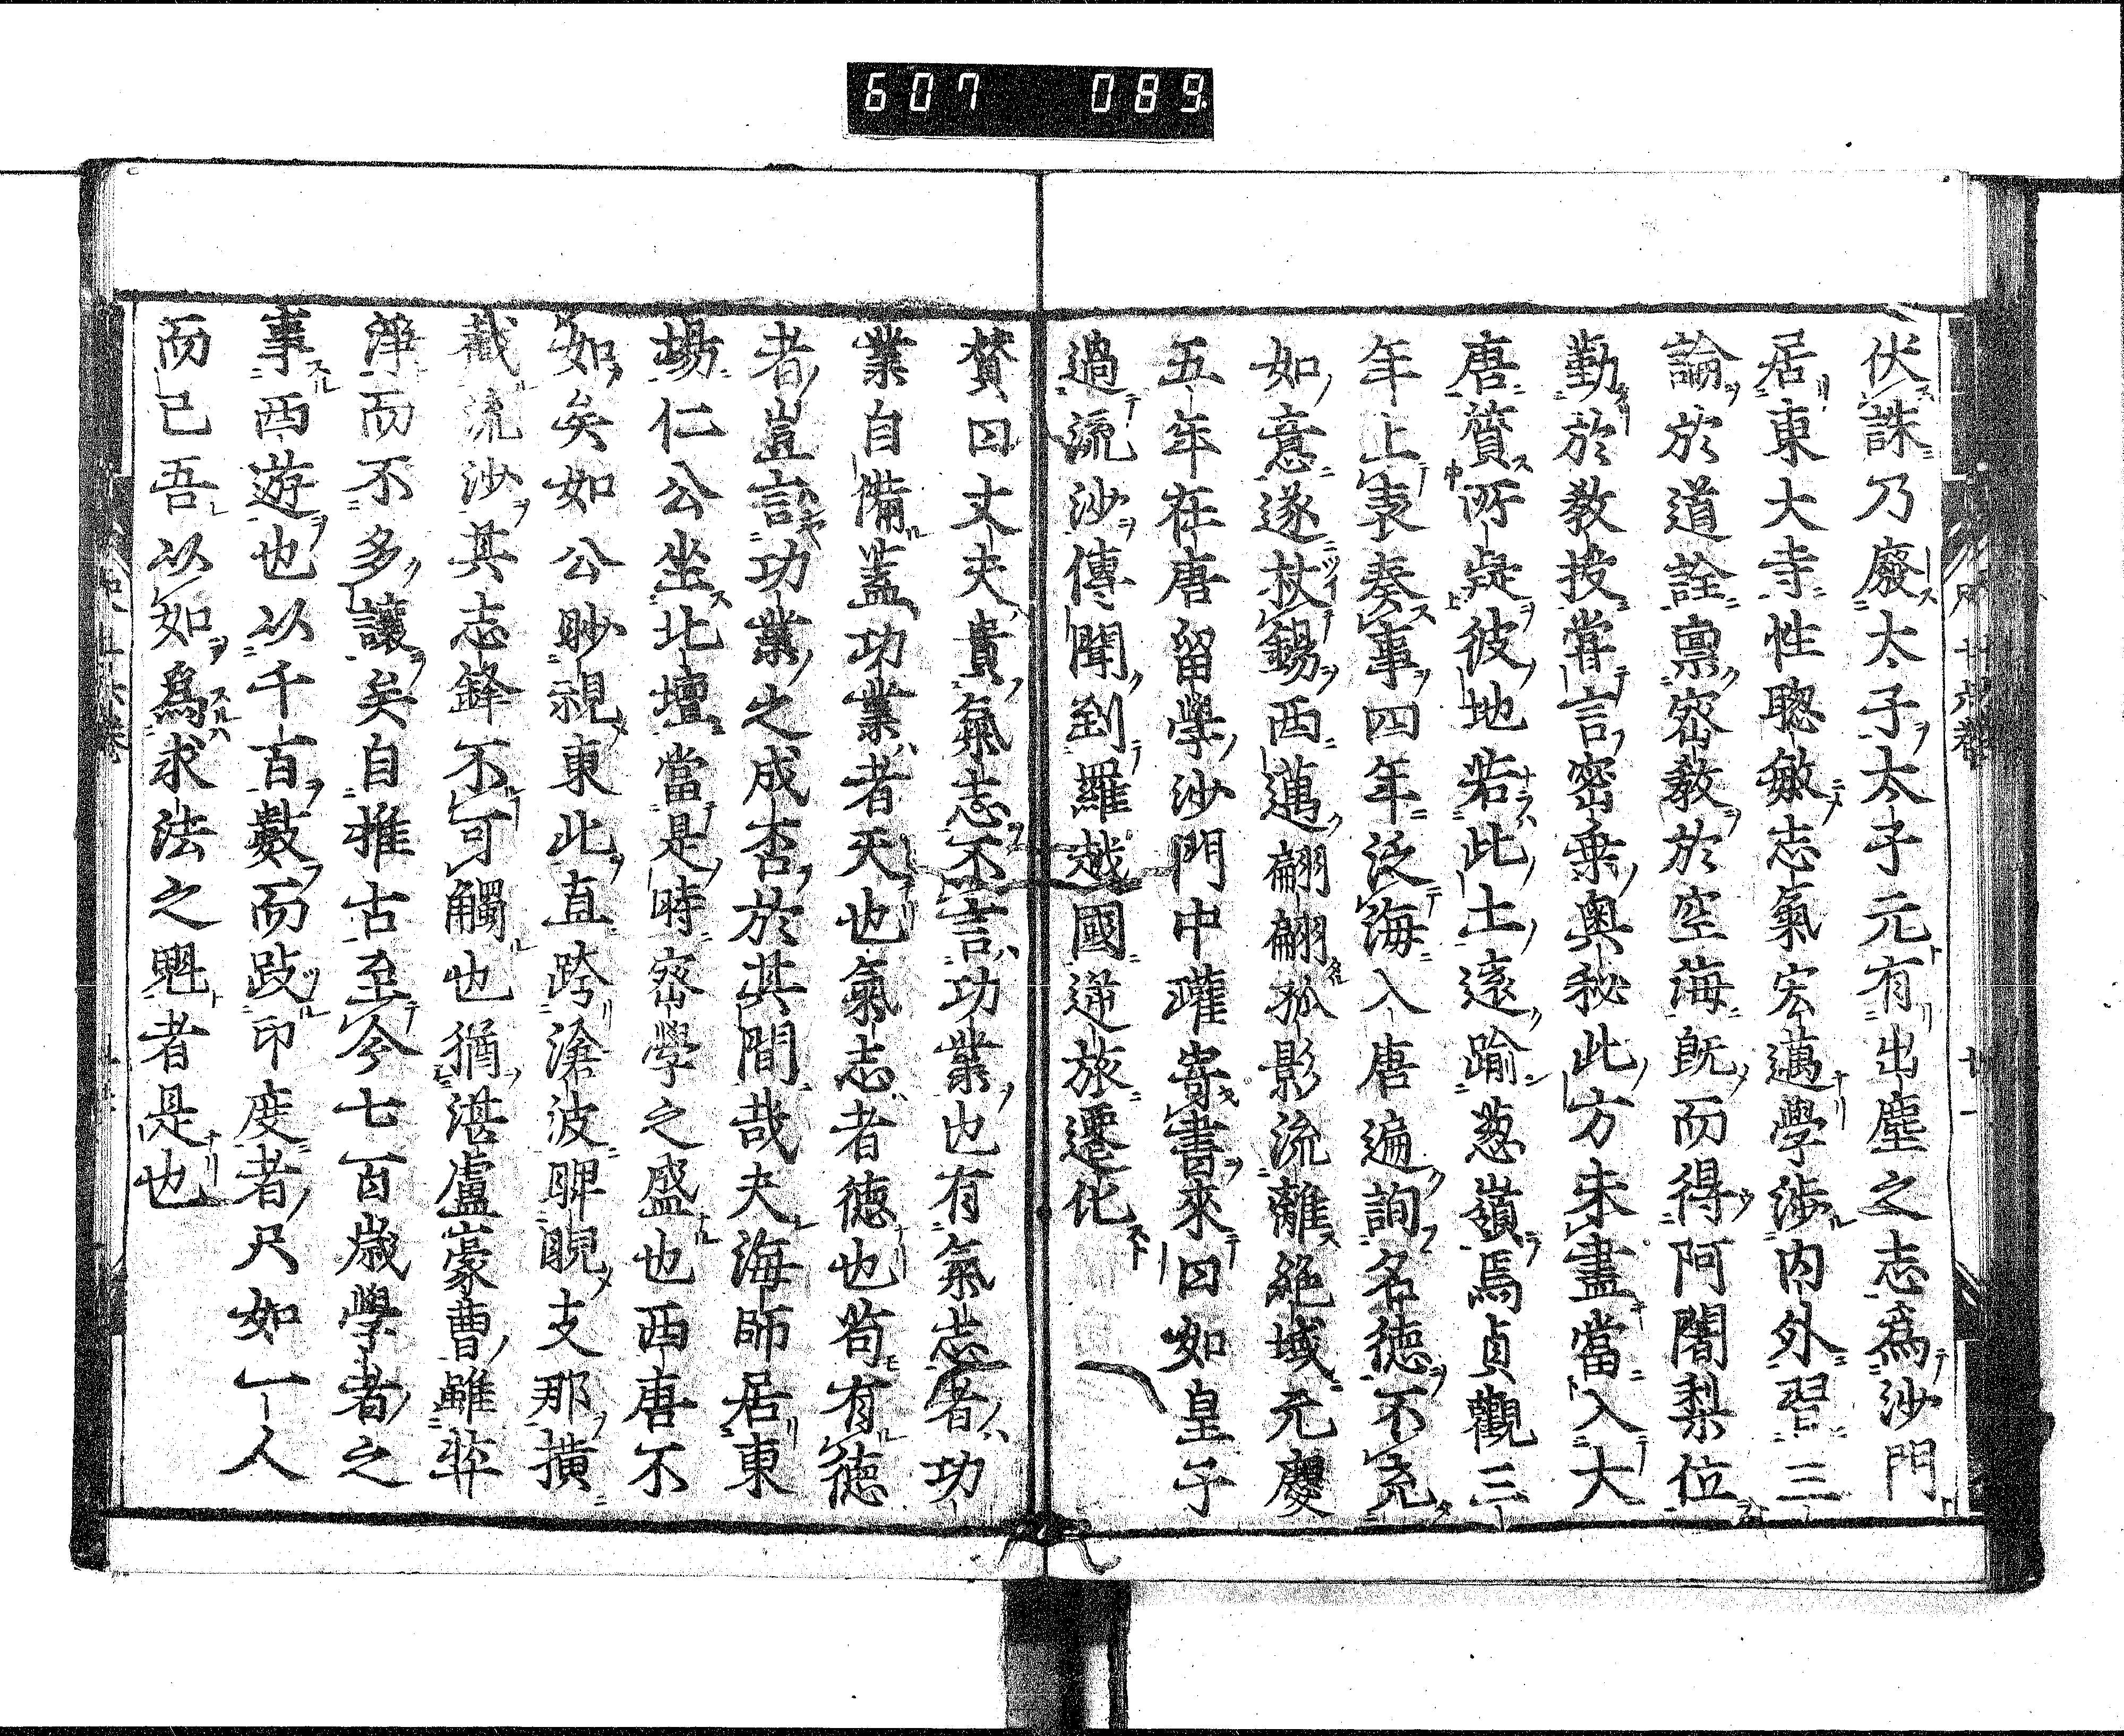 607 089
伏誅乃廢太子太子元有出塵之志爲沙門
居東大寺性聰敏志氣宏邁學渉内外習三
論於道詮禀密教於空海既而得阿闍梨位
勤於教授嘗言密乗奥秘此方未盡當入大
唐質所疑彼地若此土遠踰葱嶺焉貞觀三
年上表奏事四年泛海入唐遍詢名徳不充
如意遂杖錫西邁翩翩孤影流離絶域元慶
五年在唐留學沙門中瓘寄書來曰如皇子
過流沙傳聞到羅越國逆旅遷化
賛曰丈夫貴氣志不言功業也有氣志者功
業自備蓋功業者天也氣志者徳也苟有徳
者豈言功業之成否於其間哉夫海師居東
場仁公坐北壇當是時密學之盛也西唐不
如矣如公眇視東此直跨滄波睥睨支那横
截流沙其志鋒不可觸也猶湛盧豪曹雖弊
淨而不多讓矣自推古至今七百歳學者之
事西遊也以千百數而跂印度者只如一人
而已吾以如爲求法之魁者是也